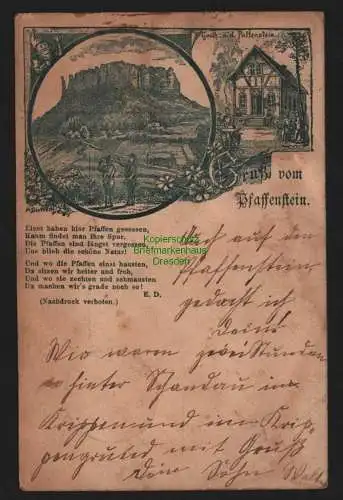 Gruß vom
Pfaffenstein.
Einst haben hier Pfaffen gesessen,
Kaum findet man ihre Spur,
Die Pfaffen sind längst vergessen,
Uns blieb die schöne Natur!
Und wo die Pfaffen einst hausten,
Da sitzen wir heiter und froh,
Und wo sie zechten und schmausten
Da machen wir's grade noch so!
E. D.
(Nachdruck verboten.)
Kopierschutz
Briefmarkenhaus
Dresden
Hoch auf dem
Pfaffenstein
gedacht ich
Deins
Wir waren zwei Stunden
hinter Schandau im
Krippengrund mit Gruß
Dein Sohn